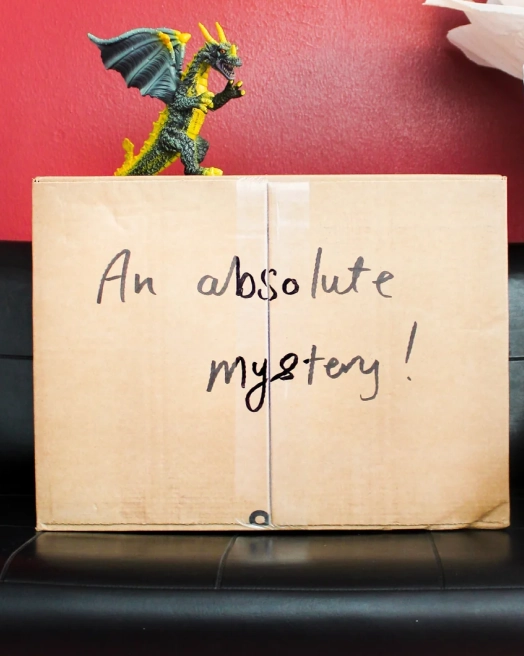 An absolute
mystery!